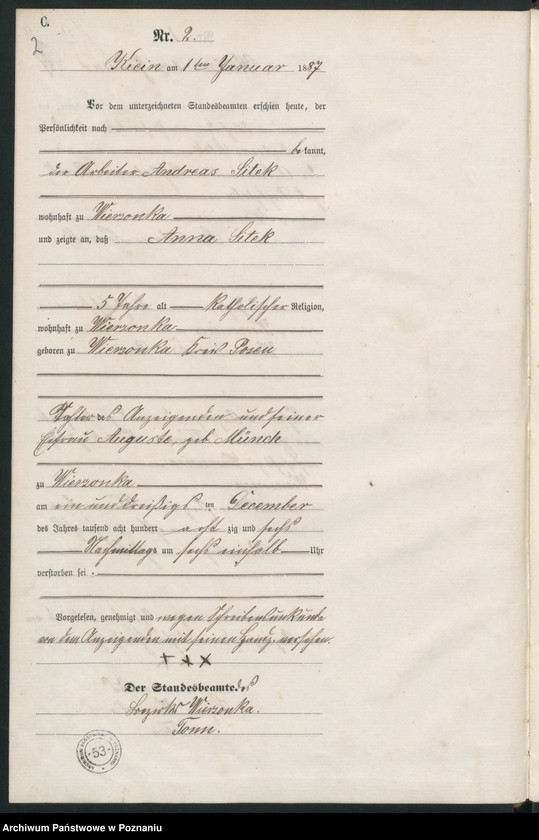 C.
2
Nr. 2.
Kicin am 1ten Januar 1887
Vor dem unterzeichneten Standesbeamten erschien heute, der
Persönlichkeit nach
bekannt,
der Arbeiter Andreas Sitek
wohnhaft zu Wierzonka
und zeigte an, daß Anna Sitek
5 Jahre alt katholischer Religion,
wohnhaft zu Wierzonka
geboren zu Wierzonka Kreis Posen
Tochter des Anzeigenden und seiner
Ehefrau Auguste, geb Münch
zu Wierzonka
am ein und dreißigsten December
des Jahres tausend acht hundert achtzig und sechs
Nachmittags um sechs einhalb Uhr
verstorben sei.
Vorgelesen, genehmigt und wegen Schreibensunkunde
von dem Anzeigenden mit seinen Handz. versehen.
+ + x
Der Standesbeamte des
Bezirks Wierzonka.
Tonn.
53
Archiwum Państwowe w Poznaniu